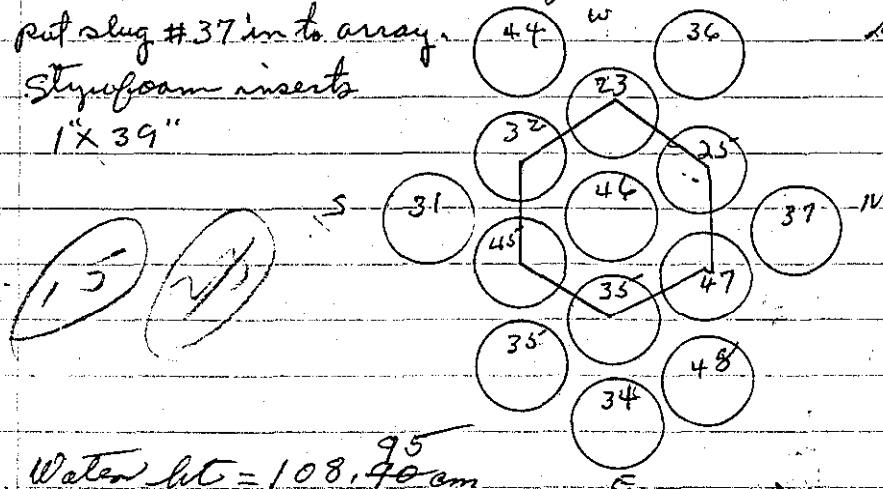 put slug #37 in to array.
Styrofoam inserts
1" X 39"
W
44 36
23
32 25
46
S 31 37 N
45 47
35
35 48
34
E
15
95
Water ht = 108.90 cm